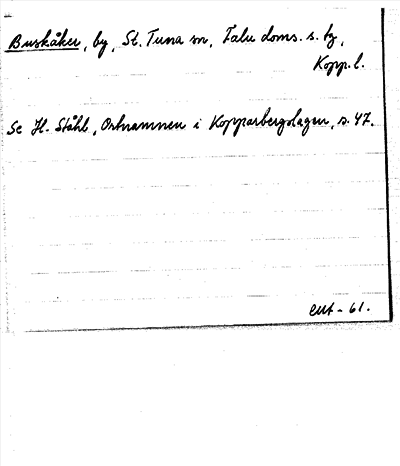 Buskåker, by, St. Tuna sn, Falu doms. s. tg,
Kopp. l.
Se H. Ståhl, Ortnamnen i Kopparbergslagen, s. 47.
61.